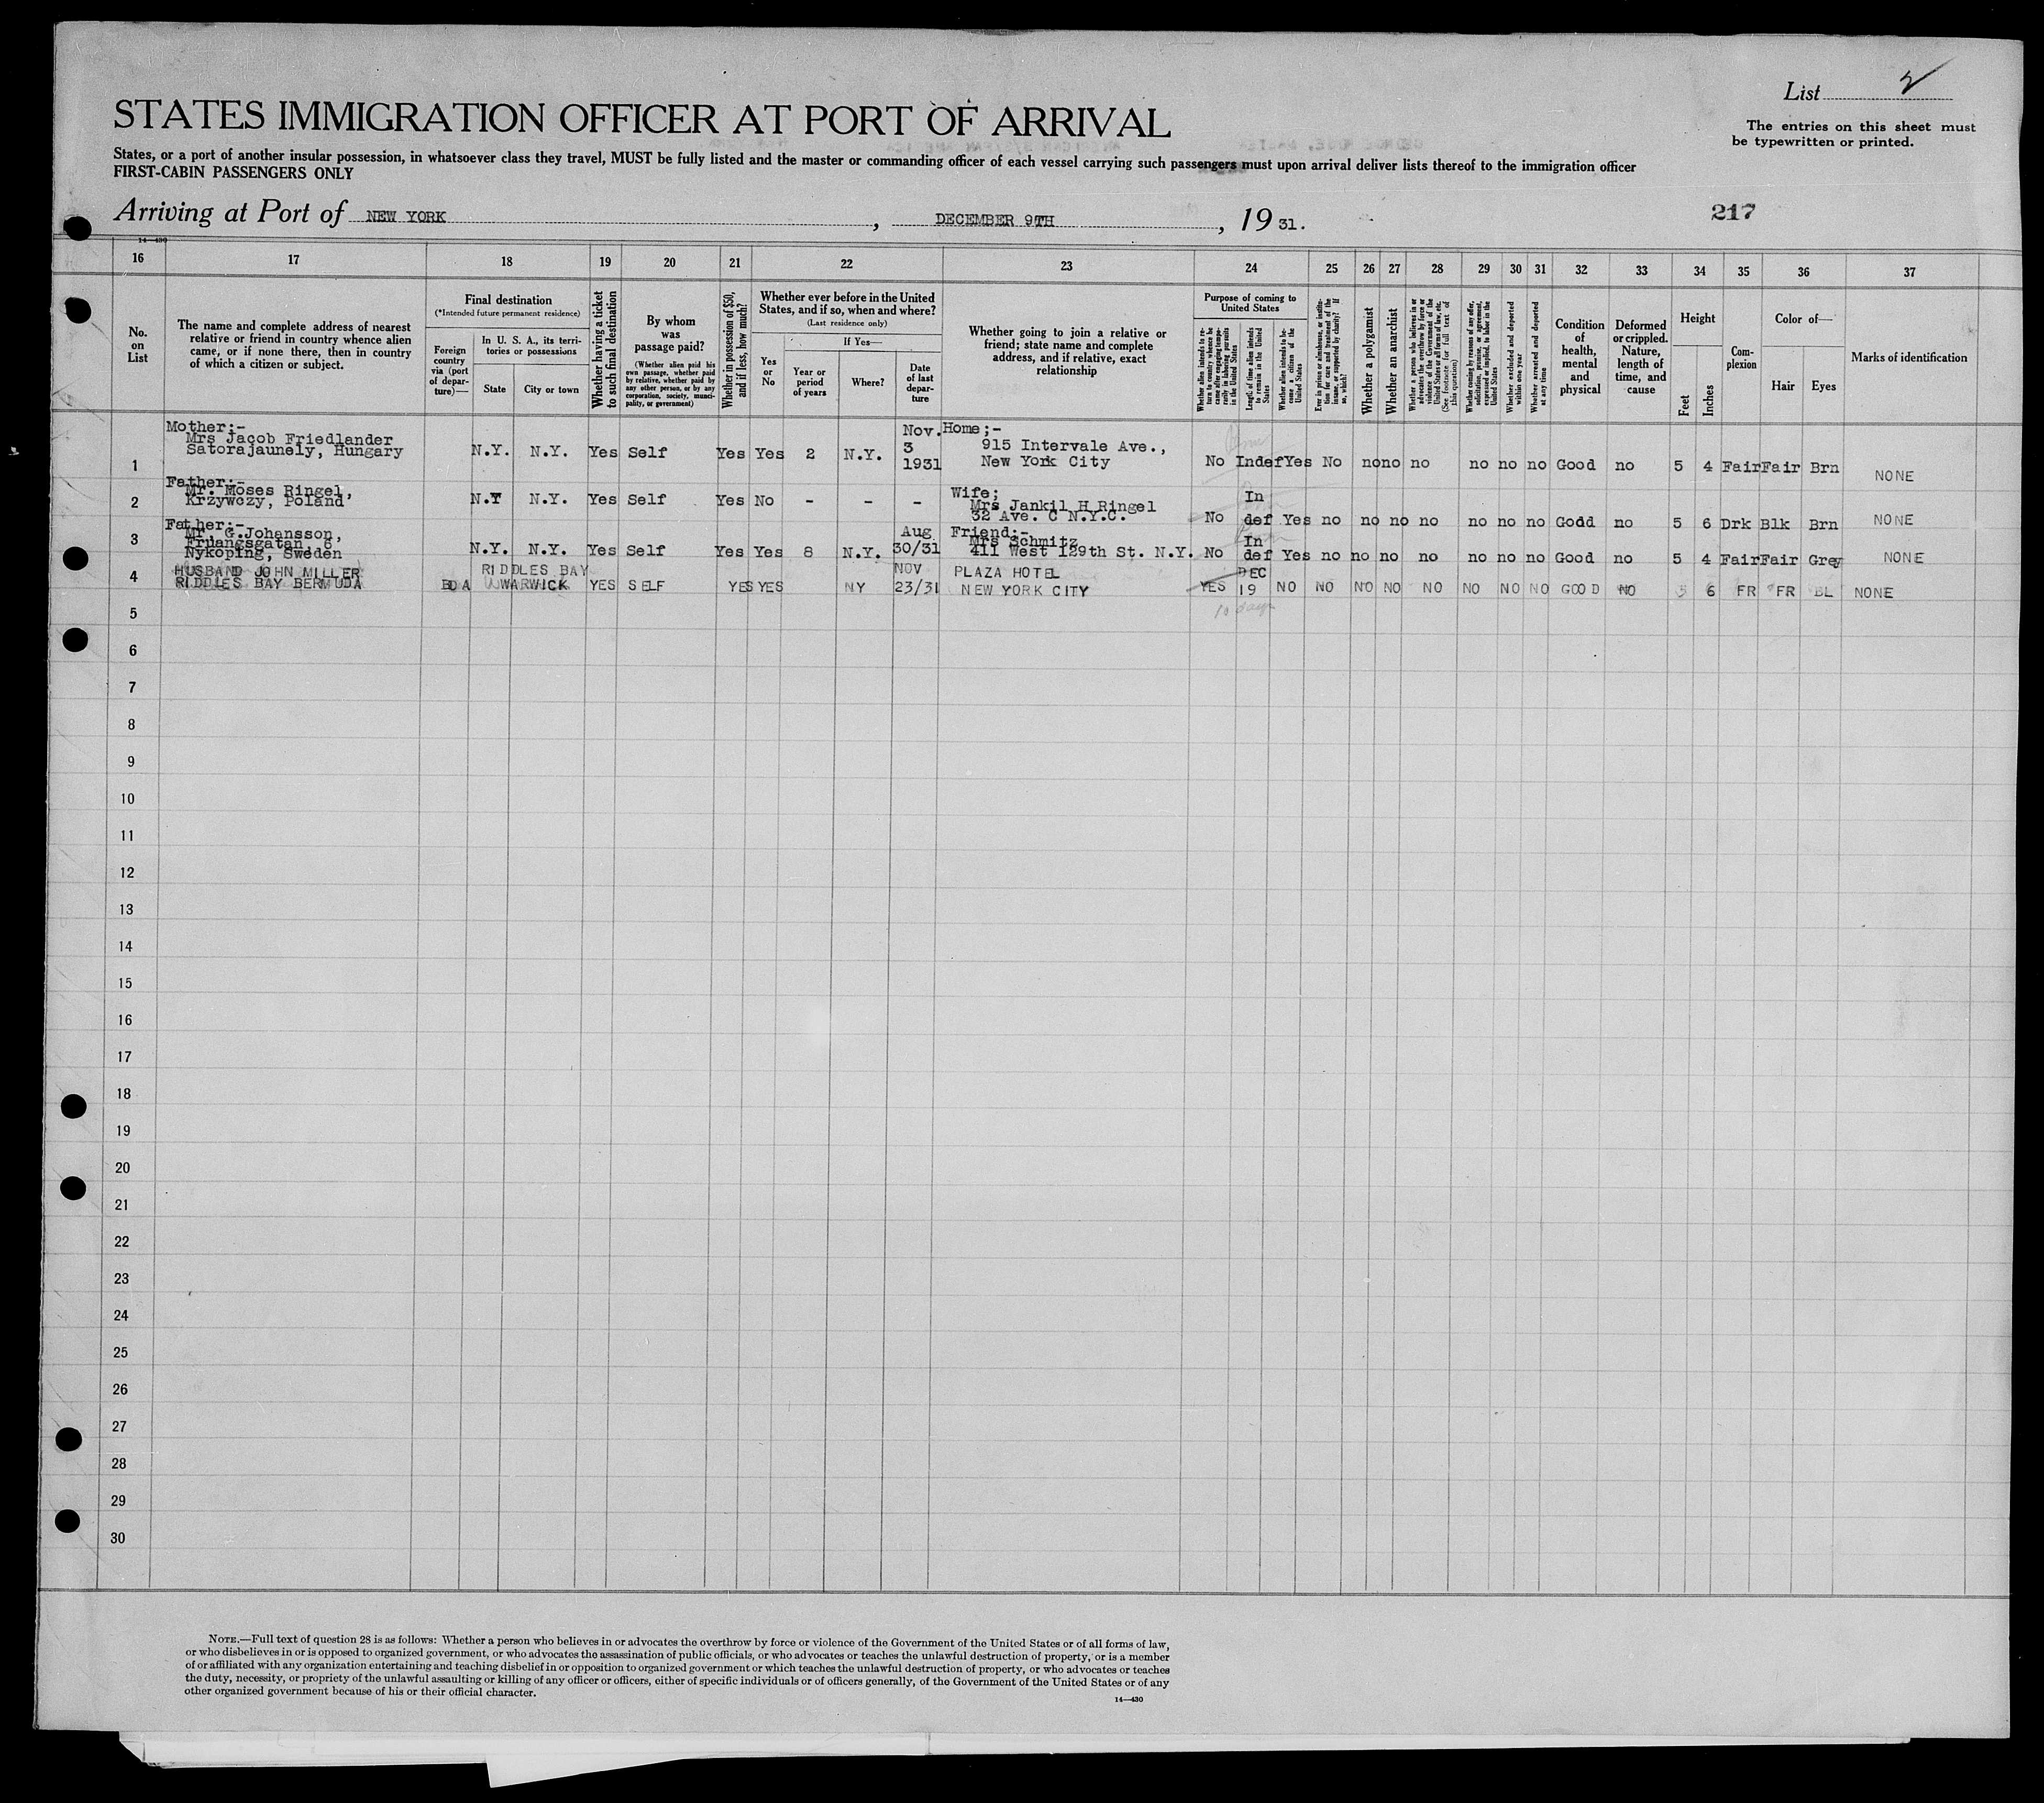 List 2
STATES IMMIGRATION OFFICER AT PORT OF ARRIVAL
The entries on this sheet must
be typewritten or printed.
States, or a port of another insular possession, in whatsoever class they travel, MUST be fully listed and the master or commanding officer of each vessel carrying such passengers must upon arrival deliver lists thereof to the immigration officer
FIRST-CABIN PASSENGERS ONLY
Arriving at Port of NEW YORK, DECEMBER 9TH, 19 31.
217
14—430
16 17 18 19 20 21 22 23 24 25 26 27 28 29 30 31 32 33 34 35 36 37
No.
on
List
The name and complete address of nearest
relative or friend in country whence alien
came, or if none there, then in country
of which a citizen or subject.
Final destination
(*Intended future permanent residence)
Foreign
country
via (port
of depar-
ture)—
In U. S. A., its terri-
tories or possessions
State
City or town
Whether having a ticket
to such final destination
By whom
was
passage paid?
(Whether alien paid his
own passage, whether paid
by relative, whether paid by
any other person, or by any
corporation, society, munici-
pality, or government)
Whether in possession of $50,
and if less, how much?
Whether ever before in the United
States, and if so, when and where?
(Last residence only)
Yes
or
No
If Yes—
Year or
period
of years
Where?
Date
of last
depar-
ture
Whether going to join a relative or
friend; state name and complete
address, and if relative, exact
relationship
Purpose of coming to
United States
Whether alien intends to re-
turn to country whence he
came after engaging tempo-
rarily in laboring pursuits
in the United States
Length of time alien intends
to remain in the United
States
Whether alien intends to be-
come a citizen of the
United States
Ever in prison or almshouse, or institu-
tion for care and treatment of the
insane, or supported by charity? If
so, which?
Whether a polygamist
Whether an anarchist
Whether a person who believes in or
advocates the overthrow by force or
violence of the Government of the
United States or all forms of law, etc.
(See footnote for full text of
this question)
Whether coming by reasons of any offer,
solicitation, promise, or agreement,
expressed or implied, to labor in the
United States
Whether excluded and deported
within one year
Whether arrested and deported
at any time
Condition
of
health,
mental
and
physical
Deformed
or crippled.
Nature,
length of
time, and
cause
Height
Feet
Inches
Com-
plexion
Color of—
Hair
Eyes
Marks of identification
Mother:-
Mrs Jacob Friedlander
Satorajaunely, Hungary
1 N.Y. N.Y. Yes Self Yes Yes 2 N.Y.
Nov.
3
1931
Home;-
915 Intervale Ave.,
New York City
No Indef Yes No no no no no no no Good no 5 4 Fair Fair Brn NONE
Father:-
Mr. Moses Ringel,
Krzywczy, Poland
2 N.Y N.Y. Yes Self Yes No - - -
Wife;
Mrs Jankil H Ringel
32 Ave. C N.Y.C.
No In
def Yes no no no no no no no Godd no 5 6 Drk Blk Brn NONE
Father:-
Mr. G.Johansson,
Fruangsgatan 6
Nykoping, Sweden
3 N.Y. N.Y. Yes Self Yes Yes 8 N.Y.
Aug
30/31
Friend:-
Mrs Schmitz
411 West 129th St. N.Y.
No In
def Yes no no no no no no no Good no 5 4 Fair Fair Grey NONE
HUSBAND JOHN MILLER
RIDDLES BAY BERMUDA
4 BDA
RIDDLES BAY
WARWICK
YES SELF YES YES NY
NOV
23/31
PLAZA HOTEL
NEW YORK CITY
YES DEC
19 NO NO NO NO NO NO NO NO GOOD NO 5 6 FR FR BL NONE
10 days
5
6
7
8
9
10
11
12
13
14
15
16
17
18
19
20
21
22
23
24
25
26
27
28
29
30
NOTE.—Full text of question 28 is as follows: Whether a person who believes in or advocates the overthrow by force or violence of the Government of the United States or of all forms of law,
or who disbelieves in or is opposed to organized government, or who advocates the assassination of public officials, or who advocates or teaches the unlawful destruction of property, or is a member
of or affiliated with any organization entertaining and teaching disbelief in or opposition to organized government or which teaches the unlawful destruction of property, or who advocates or teaches
the duty, necessity, or propriety of the unlawful assaulting or killing of any officer or officers, either of specific individuals or of officers generally, of the Government of the United States or of any
other organized government because of his or their official character.
14—430